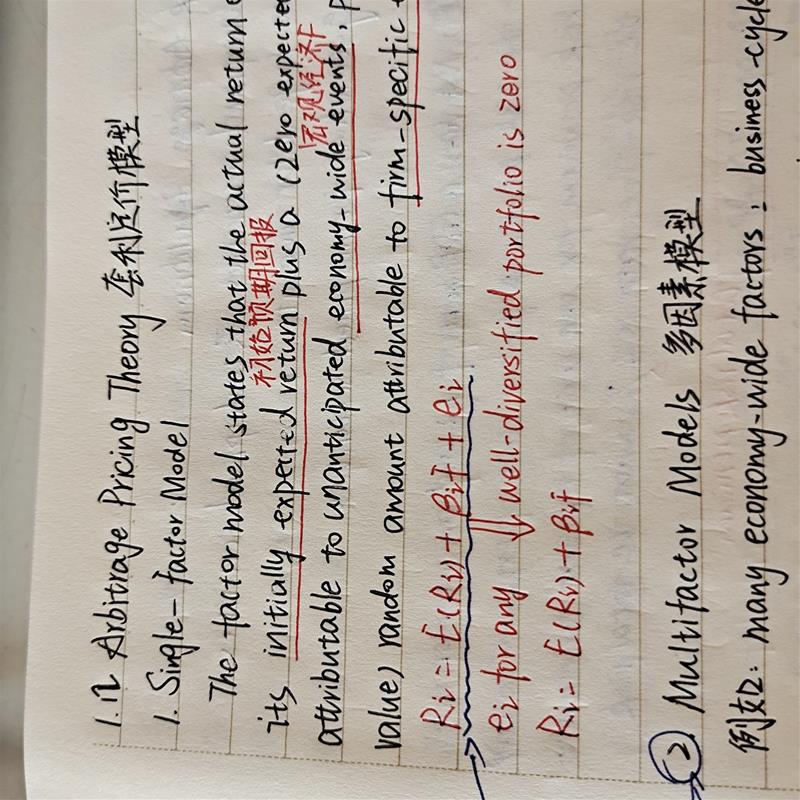 1.12 Arbitrage Pricing Theory 套利定价模型
1. Single-factor Model
The factor model states that the actual return
初始预期回报
its initially expected return plus a (zero expected
宏观经济
attributable to unanticipated economy-wide events,
value) random amount attributable to firm-specific
Ri = E(Ri) + βif + ei
ei for any well-diversified portfolio is zero
⇓
Ri = E(Ri) + βif
② Multifactor Models 多因素模型
例如: many economy-wide factors: business-cycle